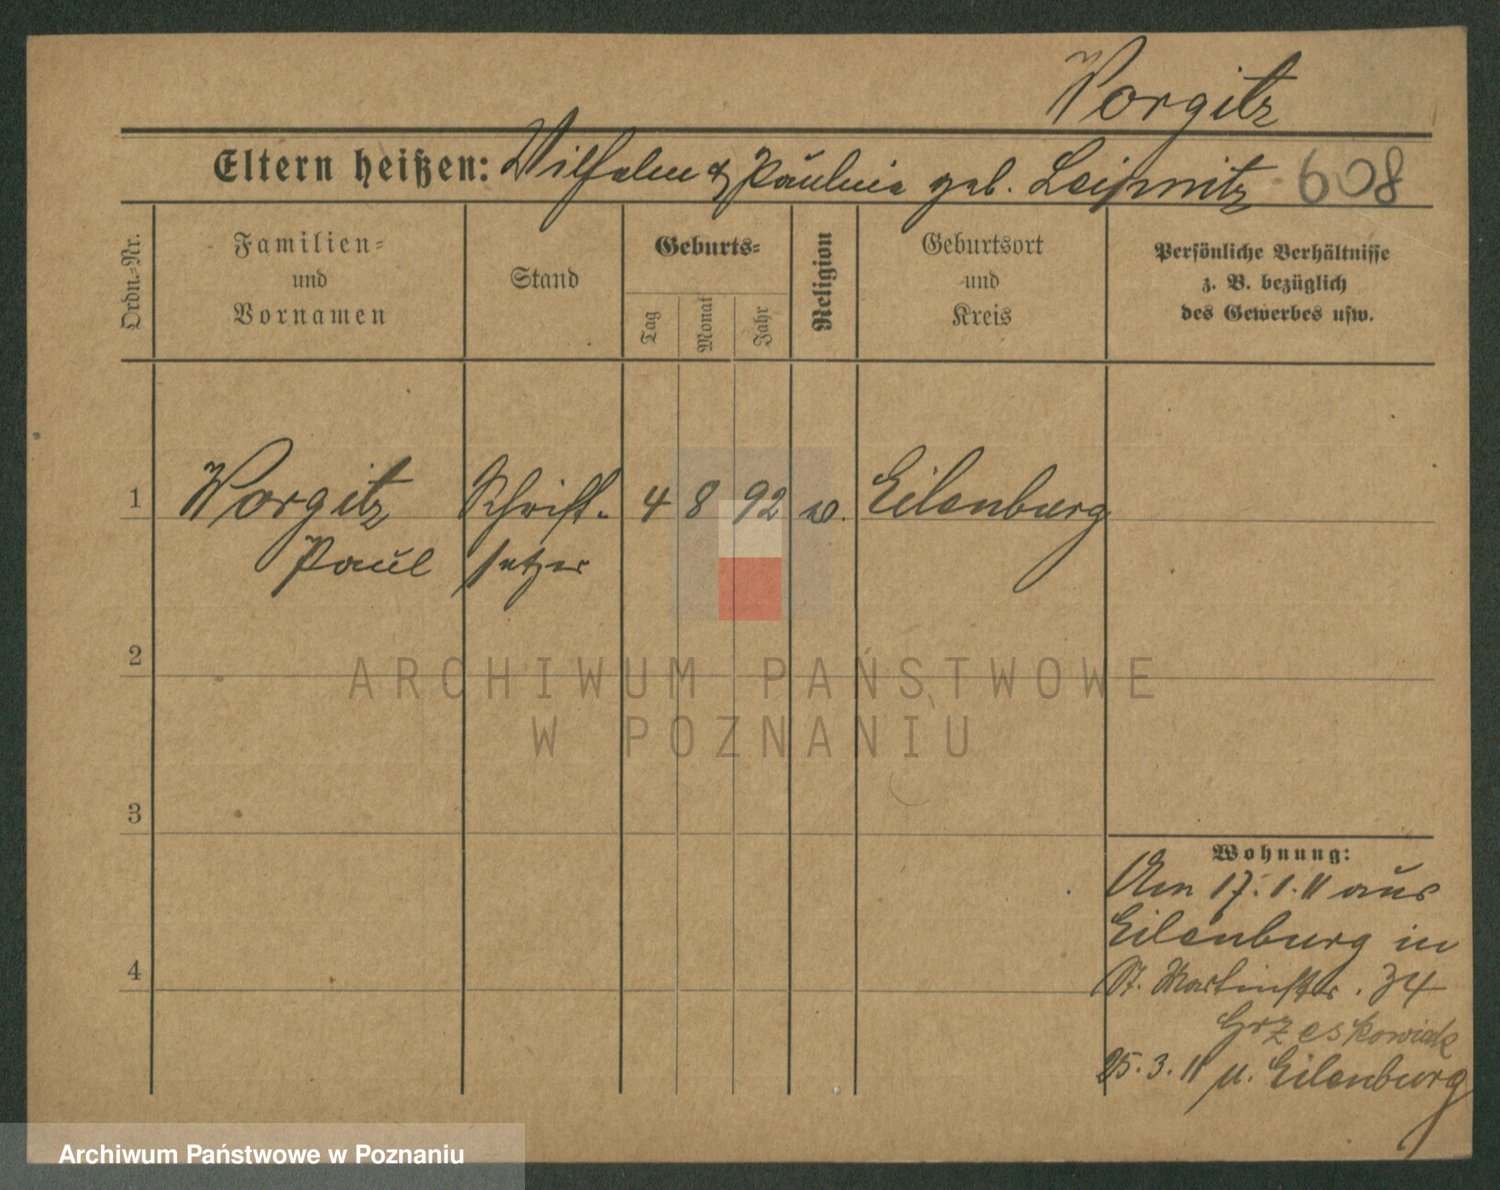 Worgitz
Eltern heißen: Wilhelm & Pauline geb. Leipnitz 608
Ordn.-Nr.
Familien-
und
Vornamen
Stand
Geburts-
Tag
Monat
Jahr
Religion
Geburtsort
und
Kreis
Persönliche Verhältnisse
z. B. bezüglich
des Gewerbes usw.
1 Worgitz Schrift- 4 8 92 ev. Eilenburg
Paul setzer
2
3
4
Wohnung:
Am 17.1.11 aus
Eilenburg in
St. Martinstr. 34
Grzeskowiak
25.3.11 n. Eilenburg
ARCHIWUM PAŃSTWOWE
W POZNANIU
Archiwum Państwowe w Poznaniu